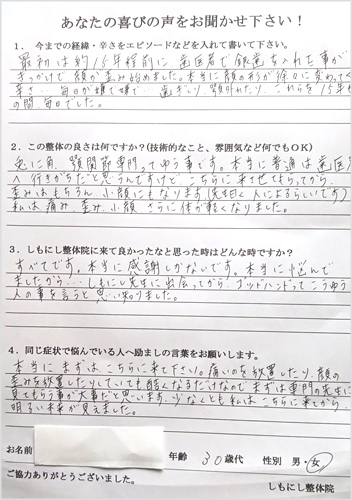 あなたの喜びの声をお聞かせ下さい！
1． 今までの経緯・辛さをエピソードなどを入れて書いて下さい。
最初は約15年程前に歯医者で銀歯を入れた事が
きっかけで顔が歪み始めました。本当に顔の形が徐々に変わってく
辛さ… 毎日が嫌で嫌で… 歯ぎしり、顎外れたり、これらを15年
の間 毎日でした。
2． この整体の良さは何ですか？(技術的なこと、雰囲気など何でもOK)
兎に角、顎関節専門ってゆう事です。本当に普通は歯医
行きがちだと思うんですけど こちらに来させてもらってから…
歪みはもちろん、小顔にもなります(先生曰く 人によるらしいです)
私は痛み 歪み 小顔 さらに体が軽くなりました。
3． しもにし整体院に来て良かったなと思った時はどんな時ですか？
すべてです。本当に感謝しかないです。本当に悩んで
ましたから… しもにし先生に出会ってから、ゴッドハンドってこうゆう
人の事を言うと思い知りました。
4． 同じ症状で悩んでいる人へ励ましの言葉をお願いします。
本当にまずはこちらに来て下さい。痛いのを放置したり、顔の
歪みを放置したりしていても酷くなるだけなので まずは専門の先生に
見てもらう事が大事だと思います。少なくとも私はこちらに来てから
明るい未来が見えました。
お名前 年齢 30歳代 性別 男・女
ご協力ありがとうございました。 しもにし整体院